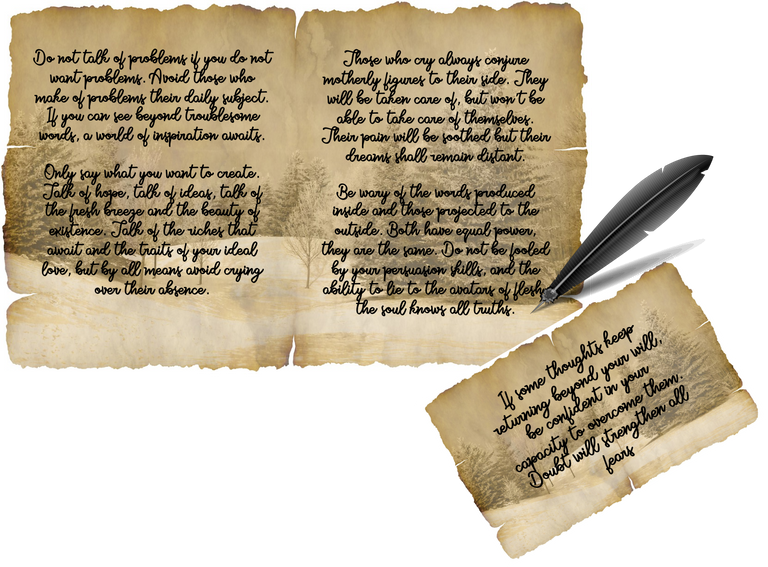 Do not talk of problems if you do not
want problems. Avoid those who
make of problems their daily subject.
If you can see beyond troublesome
words, a world of inspiration awaits.
Only say what you want to create.
Talk of hope, talk of ideas, talk of
the fresh breeze and the beauty of
existence. Talk of the riches that
await and the traits of your ideal
love, but by all means avoid crying
over their absence.
Those who cry always conjure
motherly figures to their side. They
will be taken care of, but won't be
able to take care of themselves.
Their pain will be soothed but their
dreams shall remain distant.
Be wary of the words produced
inside and those projected to the
outside. Both have equal power,
they are the same. Do not be fooled
by your persuasion skills, and the
ability to lie to the avatars of flesh,
the soul knows all truths.
If some thoughts keep
returning beyond your will,
be confident in your
capacity to overcome them.
Doubt will strengthen all
fears